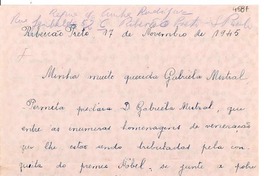 Ribeirão Preto, 17 de Novembro de 1945
Minha muito querida Gabriela Mistral
Permita preclara D. Gabriela Mistral, que
entre as inumeras homenagens de veneração
que lhe estão sendo tributadas pela con-
quista do premio Nobel, se junte a pobre